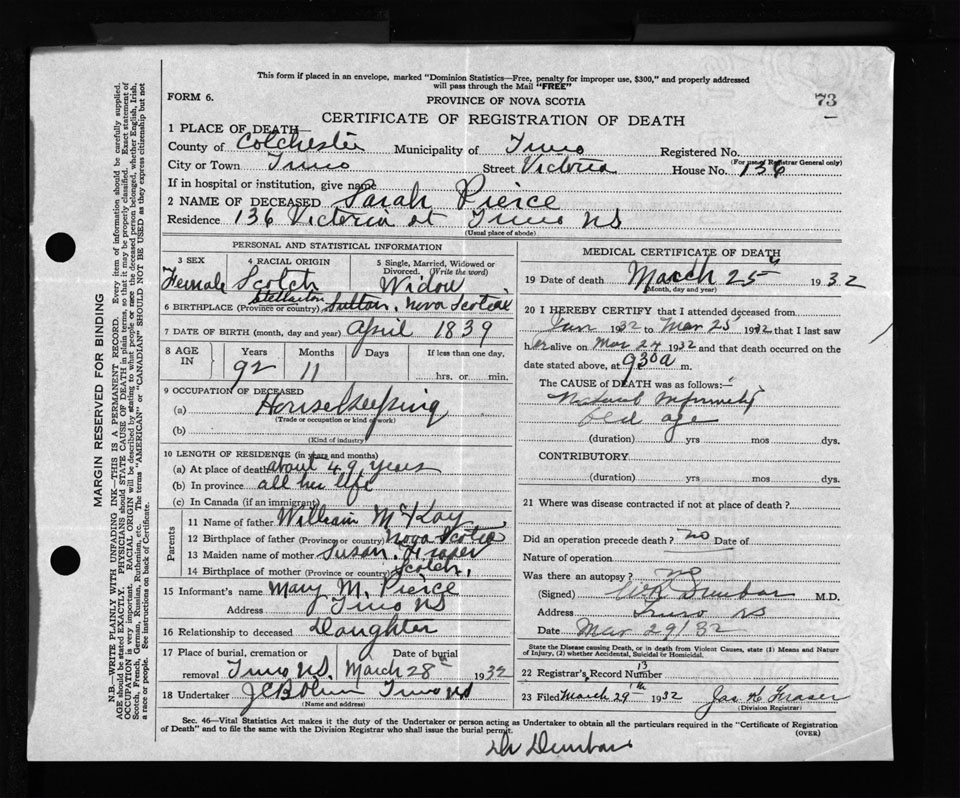 This form if placed in an envelope, marked "Dominion Statistics—Free, penalty for improper use, $300," and properly addressed
will pass through the Mail "FREE"
FORM 6.
PROVINCE OF NOVA SCOTIA
73
CERTIFICATE OF REGISTRATION OF DEATH
1 PLACE OF DEATH—
County of Colchester Municipality of Truro Registered No.
(For use of Registrar General only)
City or Town Truro Street Victoria House No. 136
If in hospital or institution, give name
2 NAME OF DECEASED Sarah Pierce
Residence 136 Victoria st Truro NS
(Usual place of abode)
PERSONAL AND STATISTICAL INFORMATION
3 SEX 4 RACIAL ORIGIN 5 Single, Married, Widowed or Divorced. (Write the word)
Female Scotch Widow
Stellarton
6 BIRTHPLACE (Province or country) Nova Scotia
7 DATE OF BIRTH (month, day and year) April 1839
8 AGE IN Years Months Days If less than one day.
92 11 hrs. or min.
9 OCCUPATION OF DECEASED
(a) Housekeeping
(Trade or occupation or kind of work)
(b)
(Kind of industry)
10 LENGTH OF RESIDENCE (in years and months)
(a) At place of death about 49 years
(b) In province all his life
(c) In Canada (if an immigrant)
Parents
11 Name of father William McKay
12 Birthplace of father (Province or country) Nova Scotia
13 Maiden name of mother Susan Fraser
14 Birthplace of mother (Province or country) Scotch,
15 Informant's name Mary M. Pierce
Address Truro NS
16 Relationship to deceased Daughter
17 Place of burial, cremation or removal Truro NS. Date of burial March 28th 1932
18 Undertaker Truro NS
(Name and address)
MEDICAL CERTIFICATE OF DEATH
19 Date of death March 25 1932
(Month, day and year)
20 I HEREBY CERTIFY that I attended deceased from
Jan 1932 to Mar 25 1932 that I last saw
her alive on Mar 24 1932 and that death occurred on the
date stated above, at 930a m.
The CAUSE of DEATH was as follows:—
Natural Infirmity
Old age
(duration) yrs mos dys.
CONTRIBUTORY
(duration) yrs mos dys.
21 Where was disease contracted if not at place of death?
Did an operation precede death? no Date of
Nature of operation
Was there an autopsy? no
(Signed) Dunbar M.D.
Address Truro NS
Date Mar 29/32
State the Disease causing Death, or in death from Violent Causes, state (1) Means and Nature of Injury, (2) whether Accidental, Suicidal or Homicidal.
22 Registrar's Record Number 13
23 Filed March 29th 1932 Jas H Fraser
(Division Registrar)
Sec. 46—Vital Statistics Act makes it the duty of the Undertaker or person acting as Undertaker to obtain all the particulars required in the "Certificate of Registration
of Death" and to file the same with the Division Registrar who shall issue the burial permit.
(OVER)
Dr Dunbar
MARGIN RESERVED FOR BINDING
N.B.—WRITE PLAINLY WITH UNFADING INK—THIS IS A PERMANENT RECORD. Every item of information should be carefully supplied.
AGE should be stated EXACTLY. PHYSICIANS should STATE CAUSE OF DEATH in plain terms, so that it may be properly classified. Exact statement of
OCCUPATION is very important. RACIAL ORIGIN will be described by stating to what people or race the deceased person belonged, whether English, Irish,
Scotch, French, German, Russian, Ruthenian, etc. The terms "AMERICAN" or "CANADIAN" SHOULD NOT BE USED as they express citizenship but not
a race or people. See instructions on back of Certificate.